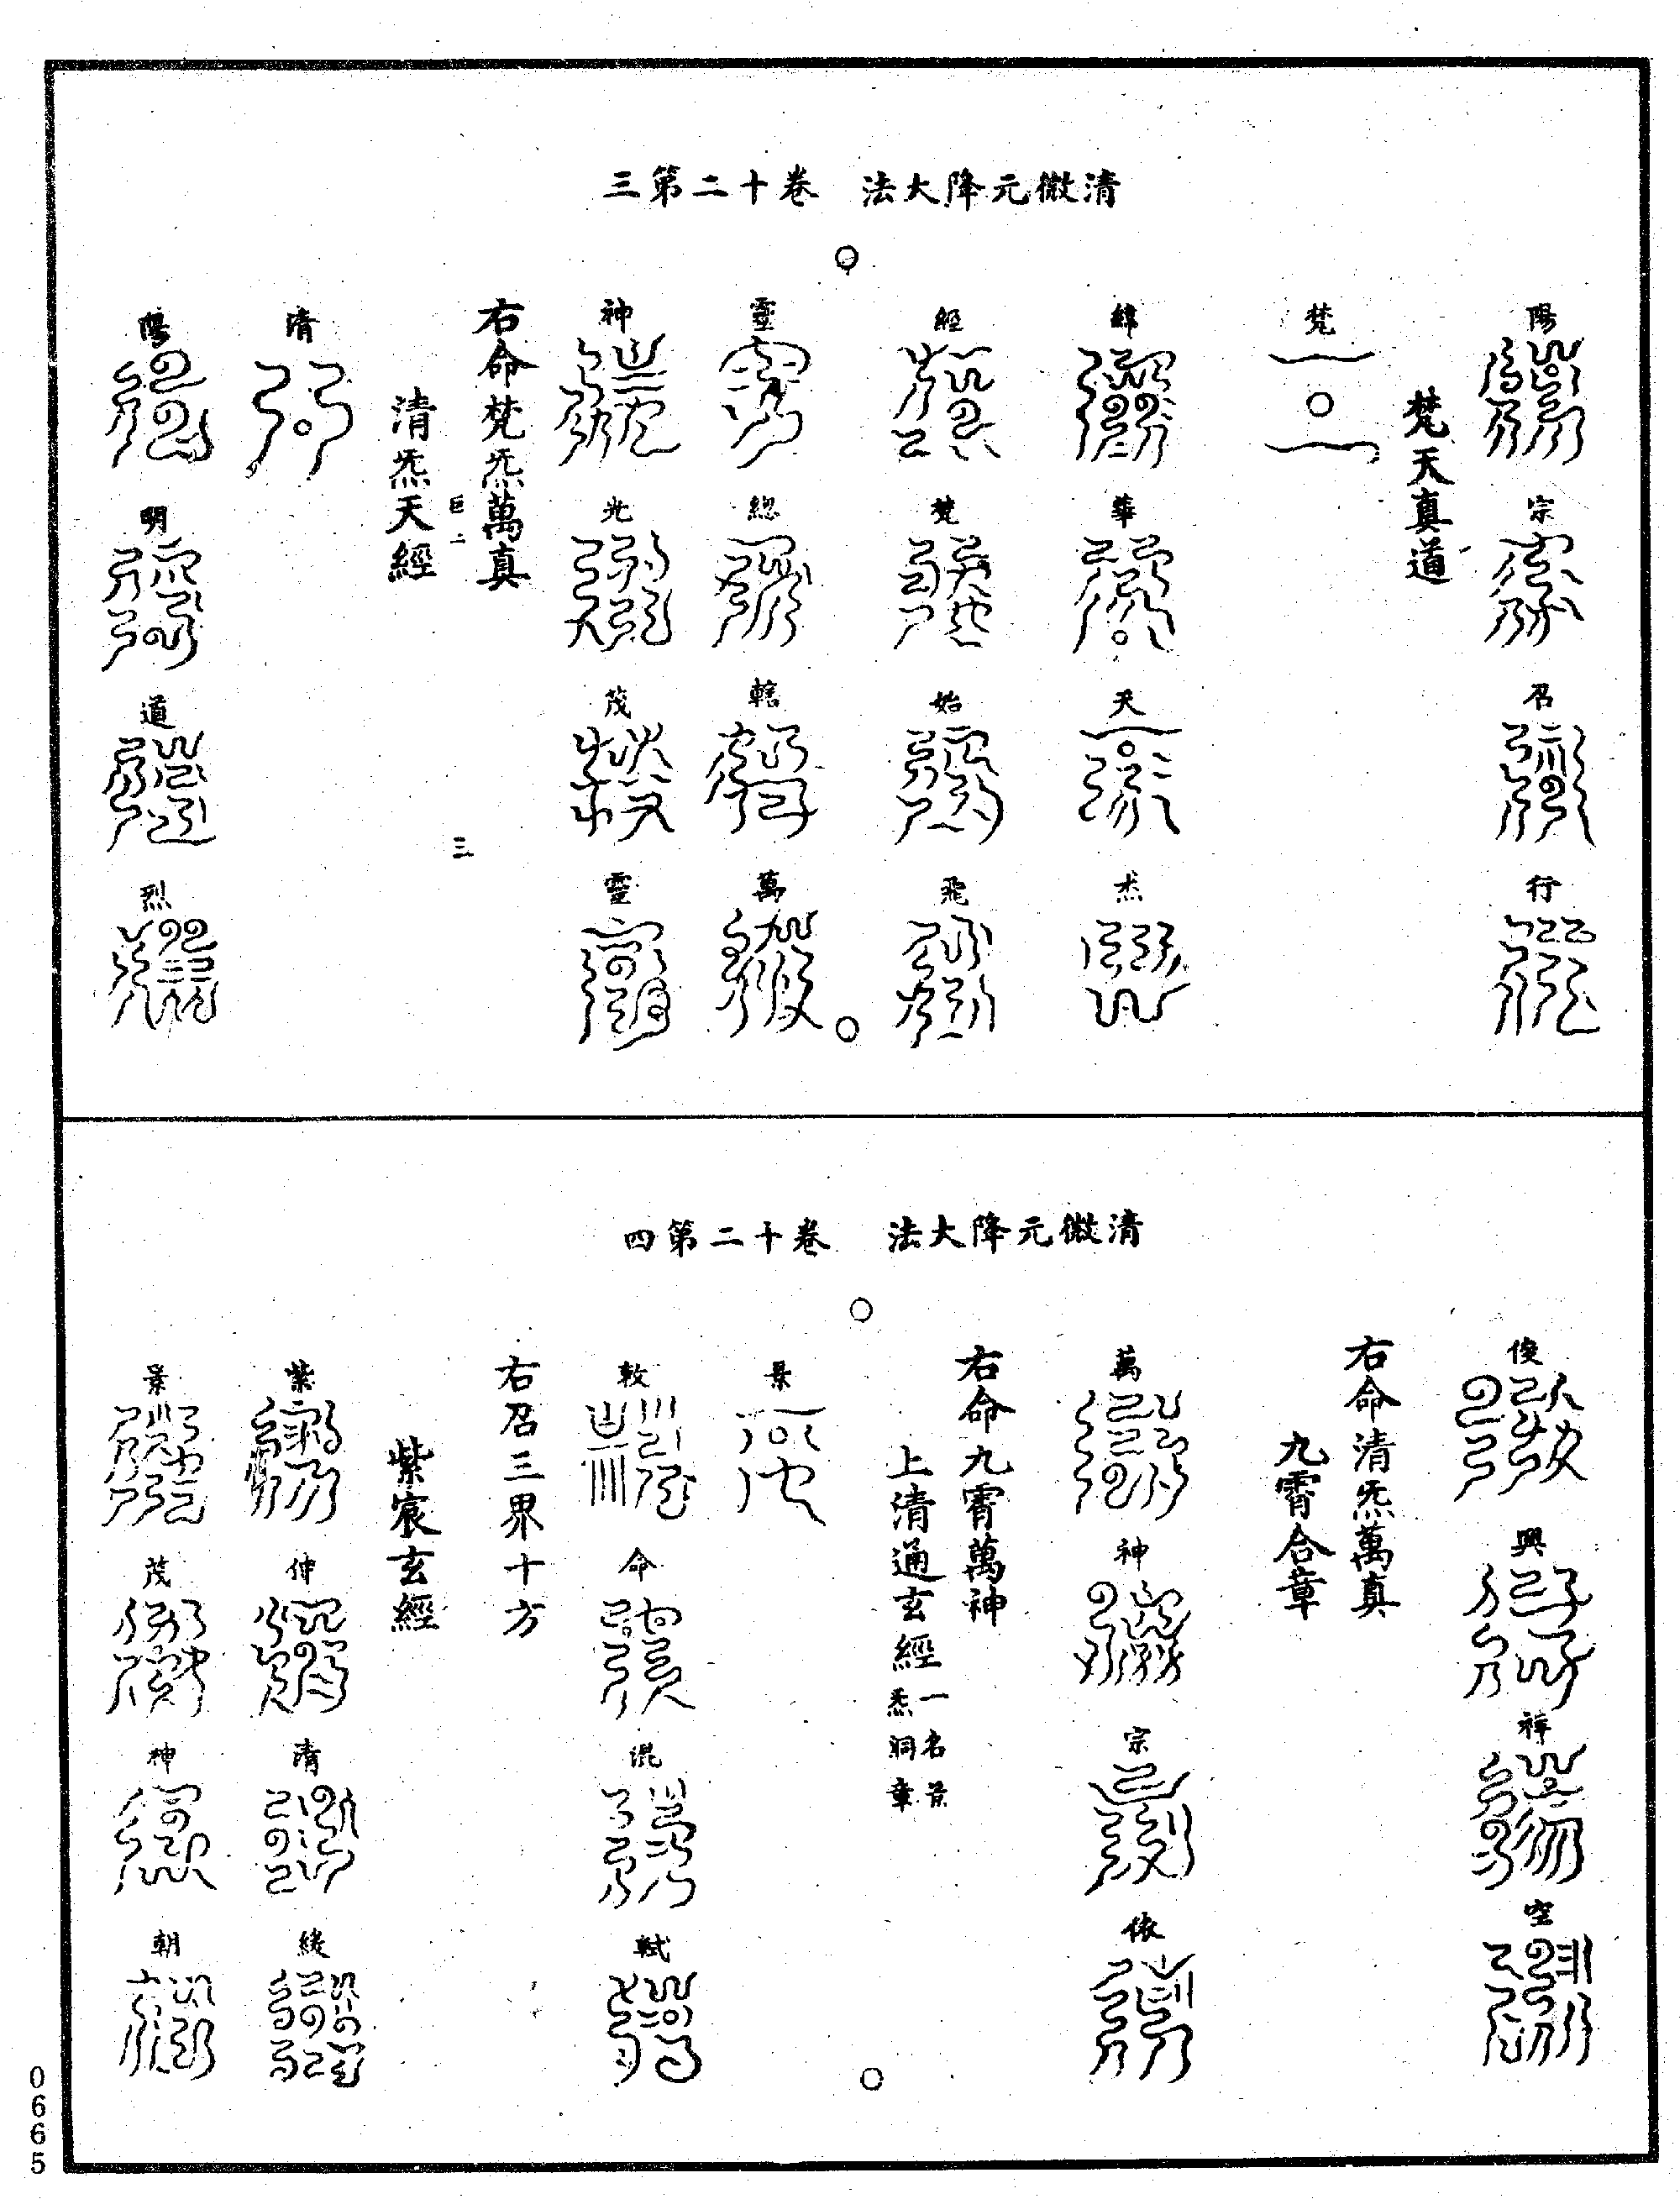 三第二十卷　法大降元微清
陽宗召行
梵天真道
梵
緯華天炁
經梵始飛
靈總轄萬
神光茂靈
右命梵炁萬真
巨二　三
清炁天經
清
陽明道烈
四第二十卷　法大降元微清
俊興祥空
右命清炁萬真
九霄合章
萬神宗依
右命九霄萬神
上清通玄經一名景炁洞章
景
敕命混軾
右召三界十方
紫宸玄經
紫伸清綾
景茂神朝
0665